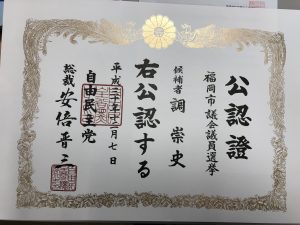 公認證
福岡市議会議員選挙
候補者 調 崇史
右公認する
平成三十年十二月七日
自由民主党
総裁 安倍晋三